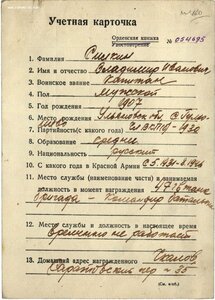 Учетная карточка
Орденская книжка
Удостоверение № 054695
1. Фамилия Смукин
2. Имя и отчество Владимир Иванович
3. Воинское звание Капитан
4. Пол мужской
5. Год рождения 1907
6. Место рождения
7. Партийность (с какого года) 1930
8. Образование среднее
9. Национальность русский
10. С какого года в Красной Армии
11. Место службы (наименование части) и занимаемая
должность в момент награждения 47
бригада - Командир батальона
12. Место службы и должность в настоящее время
временно не работает
13. Домашний адрес награжденного Чкалов
35
(См. н/об.)